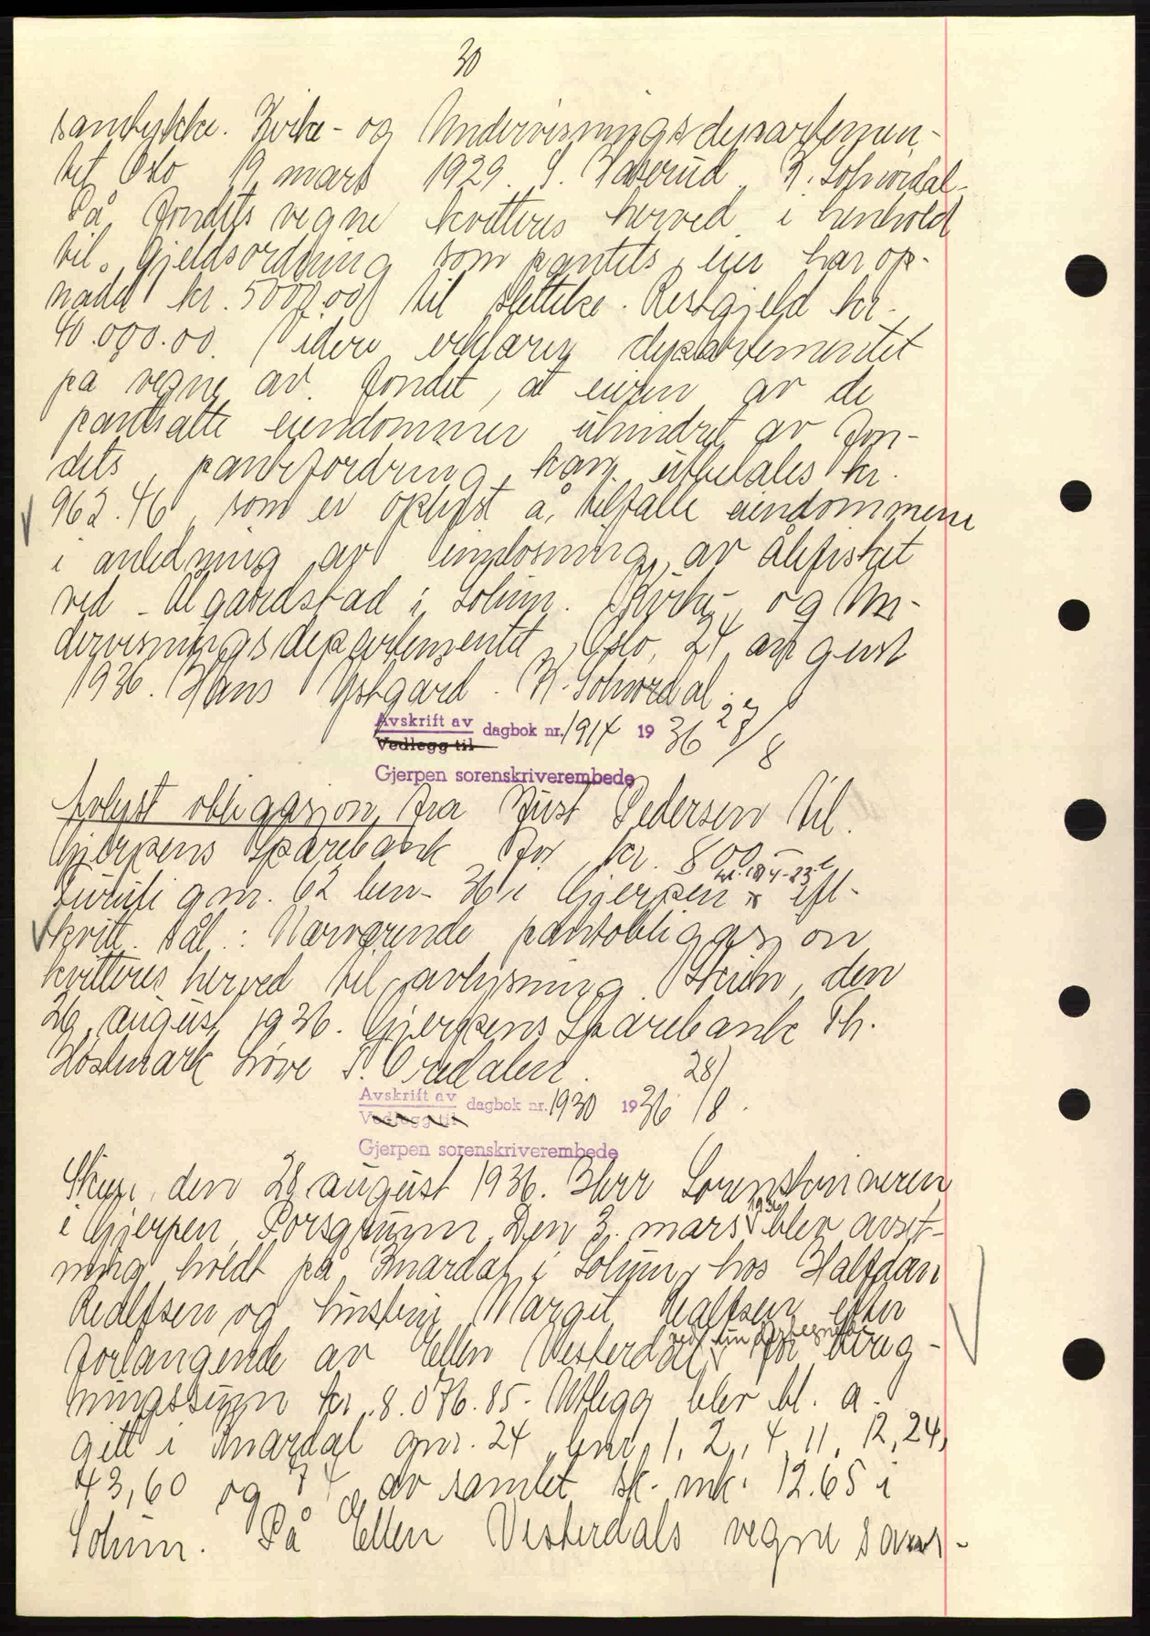 30
samtykke. Kirke- og Undervisningsdepartemen-
tet Oslo 19 mars 1929. S. Haserud K. Solnørdal.
På fondets vegne kvitteres herved i henhold
til gjeldsordning som pantets eier har op-
nådd kr. 5000.00 til slettelse. Restgjeld kr.
40.000.00. Videre erklærer departementet
på vegne av fondet, at eieren av de
pantsatte eiendommer uhindret av fon-
dets pantefordring kan utbetales kr.
962.46, som er oplyst å tilfalle eiendommene
i anledning av innløsning av ålefisket
ved Ålgårdstad i Solum. Kirke- og Un-
dervisningsdepartementet, Oslo, 24 august
1936. Hans Ystgård. K. Solnørdal.
Avskrift av
Vedlegg til dagbok nr. 1914 1936 27/8
Gjerpen sorenskriverembede
Avlyst obligasjon fra Just Pedersen til
Gjerpens Sparebank for kr. 800.-
Furuli gnr. 62 bnr. 36 i Gjerpen x efl.
kvitt. sål.: Nærværende pantobligasjon
kvitteres herved til avlysning. Skien, den
26. august 1936. Gjerpens Sparebank Th.
Høstmark Løve P. Oredalen.
Avskrift av
Vedlegg til dagbok nr. 1930 1936 28/8.
Gjerpen sorenskriverembede
Skien, den 28 august 1936. Herr Sorenskriveren
i Gjerpen, Porsgrunn. Den 3. mars 1936 blev avset-
ning holdt på Knardal i Solum hos Halfdan
Realfsen og hustru Margit Realfsen efter
forlangende av Ellen Vesterdal for bereg-
ningssum kr. 8.076.85. Utlegg blev bl. a.
gitt i Knardal gnr. 24 bnr. 1, 2, 4, 11, 12, 24,
43, 60 og 74 av samlet sk. mk. 12.65 i
Solum. På Ellen Vesterdals vegne sam-